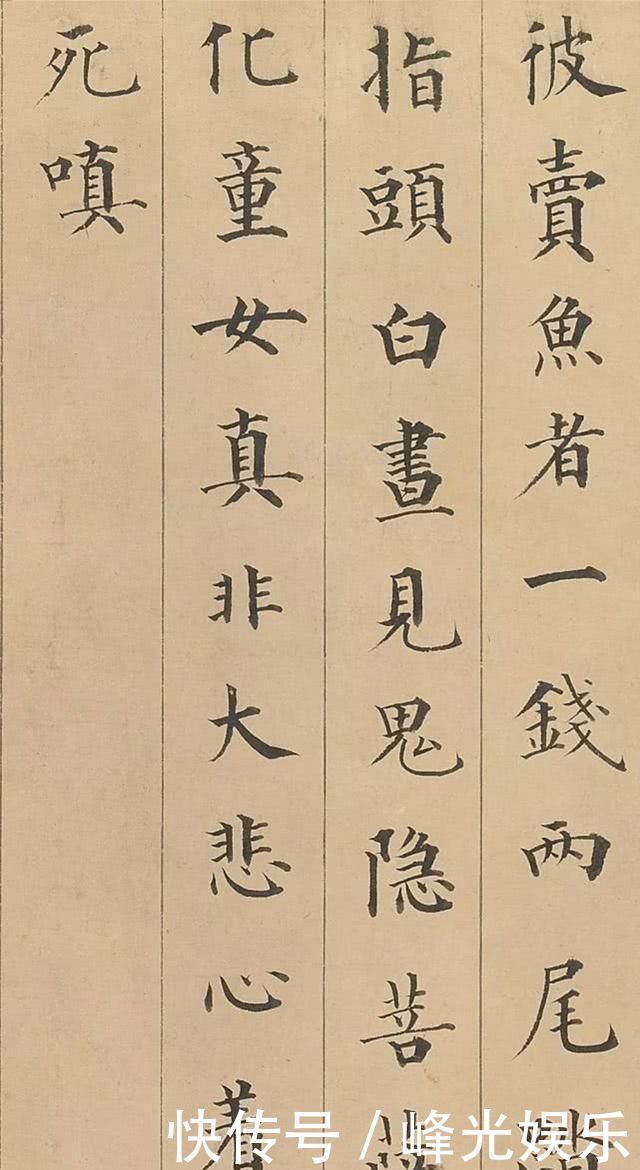 彼賣魚者一錢兩尾
指頭白晝見鬼隐菩
化童女真非大悲心着
死嗔
快传号/峰光娱乐